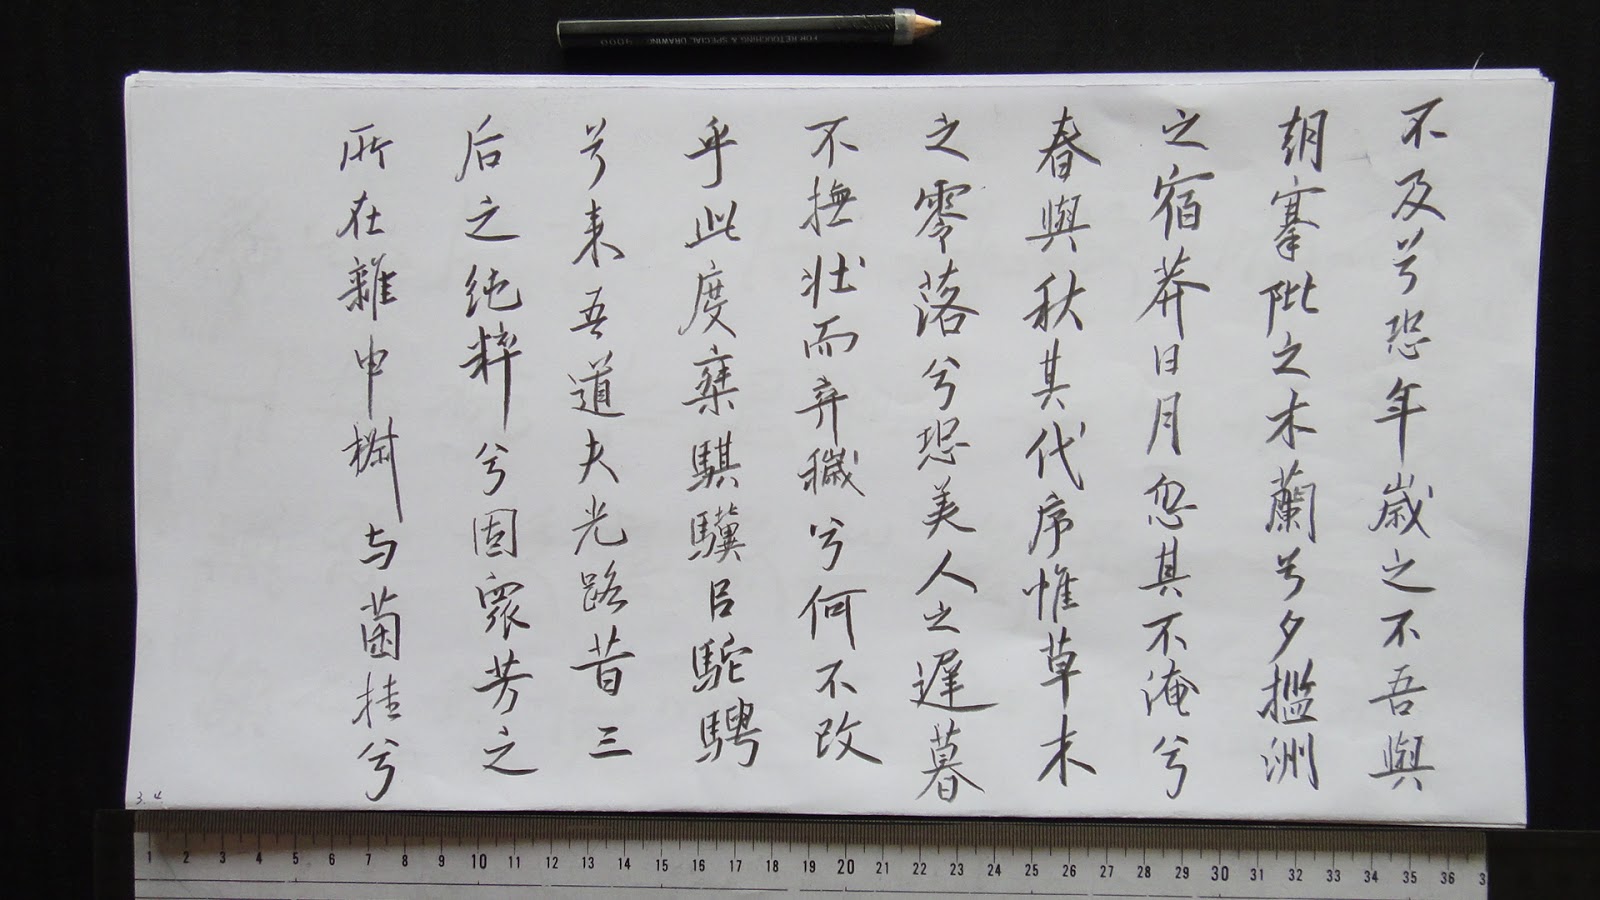 不及兮恐年歲之不吾與
朝搴阰之木蘭兮夕㩜洲
之宿莽日月忽其不淹兮
春與秋其代序惟草木
之零落兮恐美人之遲暮
不撫壯而弃穢兮何不改
乎此度椉騏驥㠯駝騁
兮来吾道夫光路昔三
后之純粹兮固衆芳之
所在雜申椒与菌桂兮
3.4
FOR RETOUCHING & SPECIAL DRAWING 9000
1 2 3 4 5 6 7 8 9 10 11 12 13 14 15 16 17 18 19 20 21 22 23 24 25 26 27 28 29 30 31 32 33 34 35 36